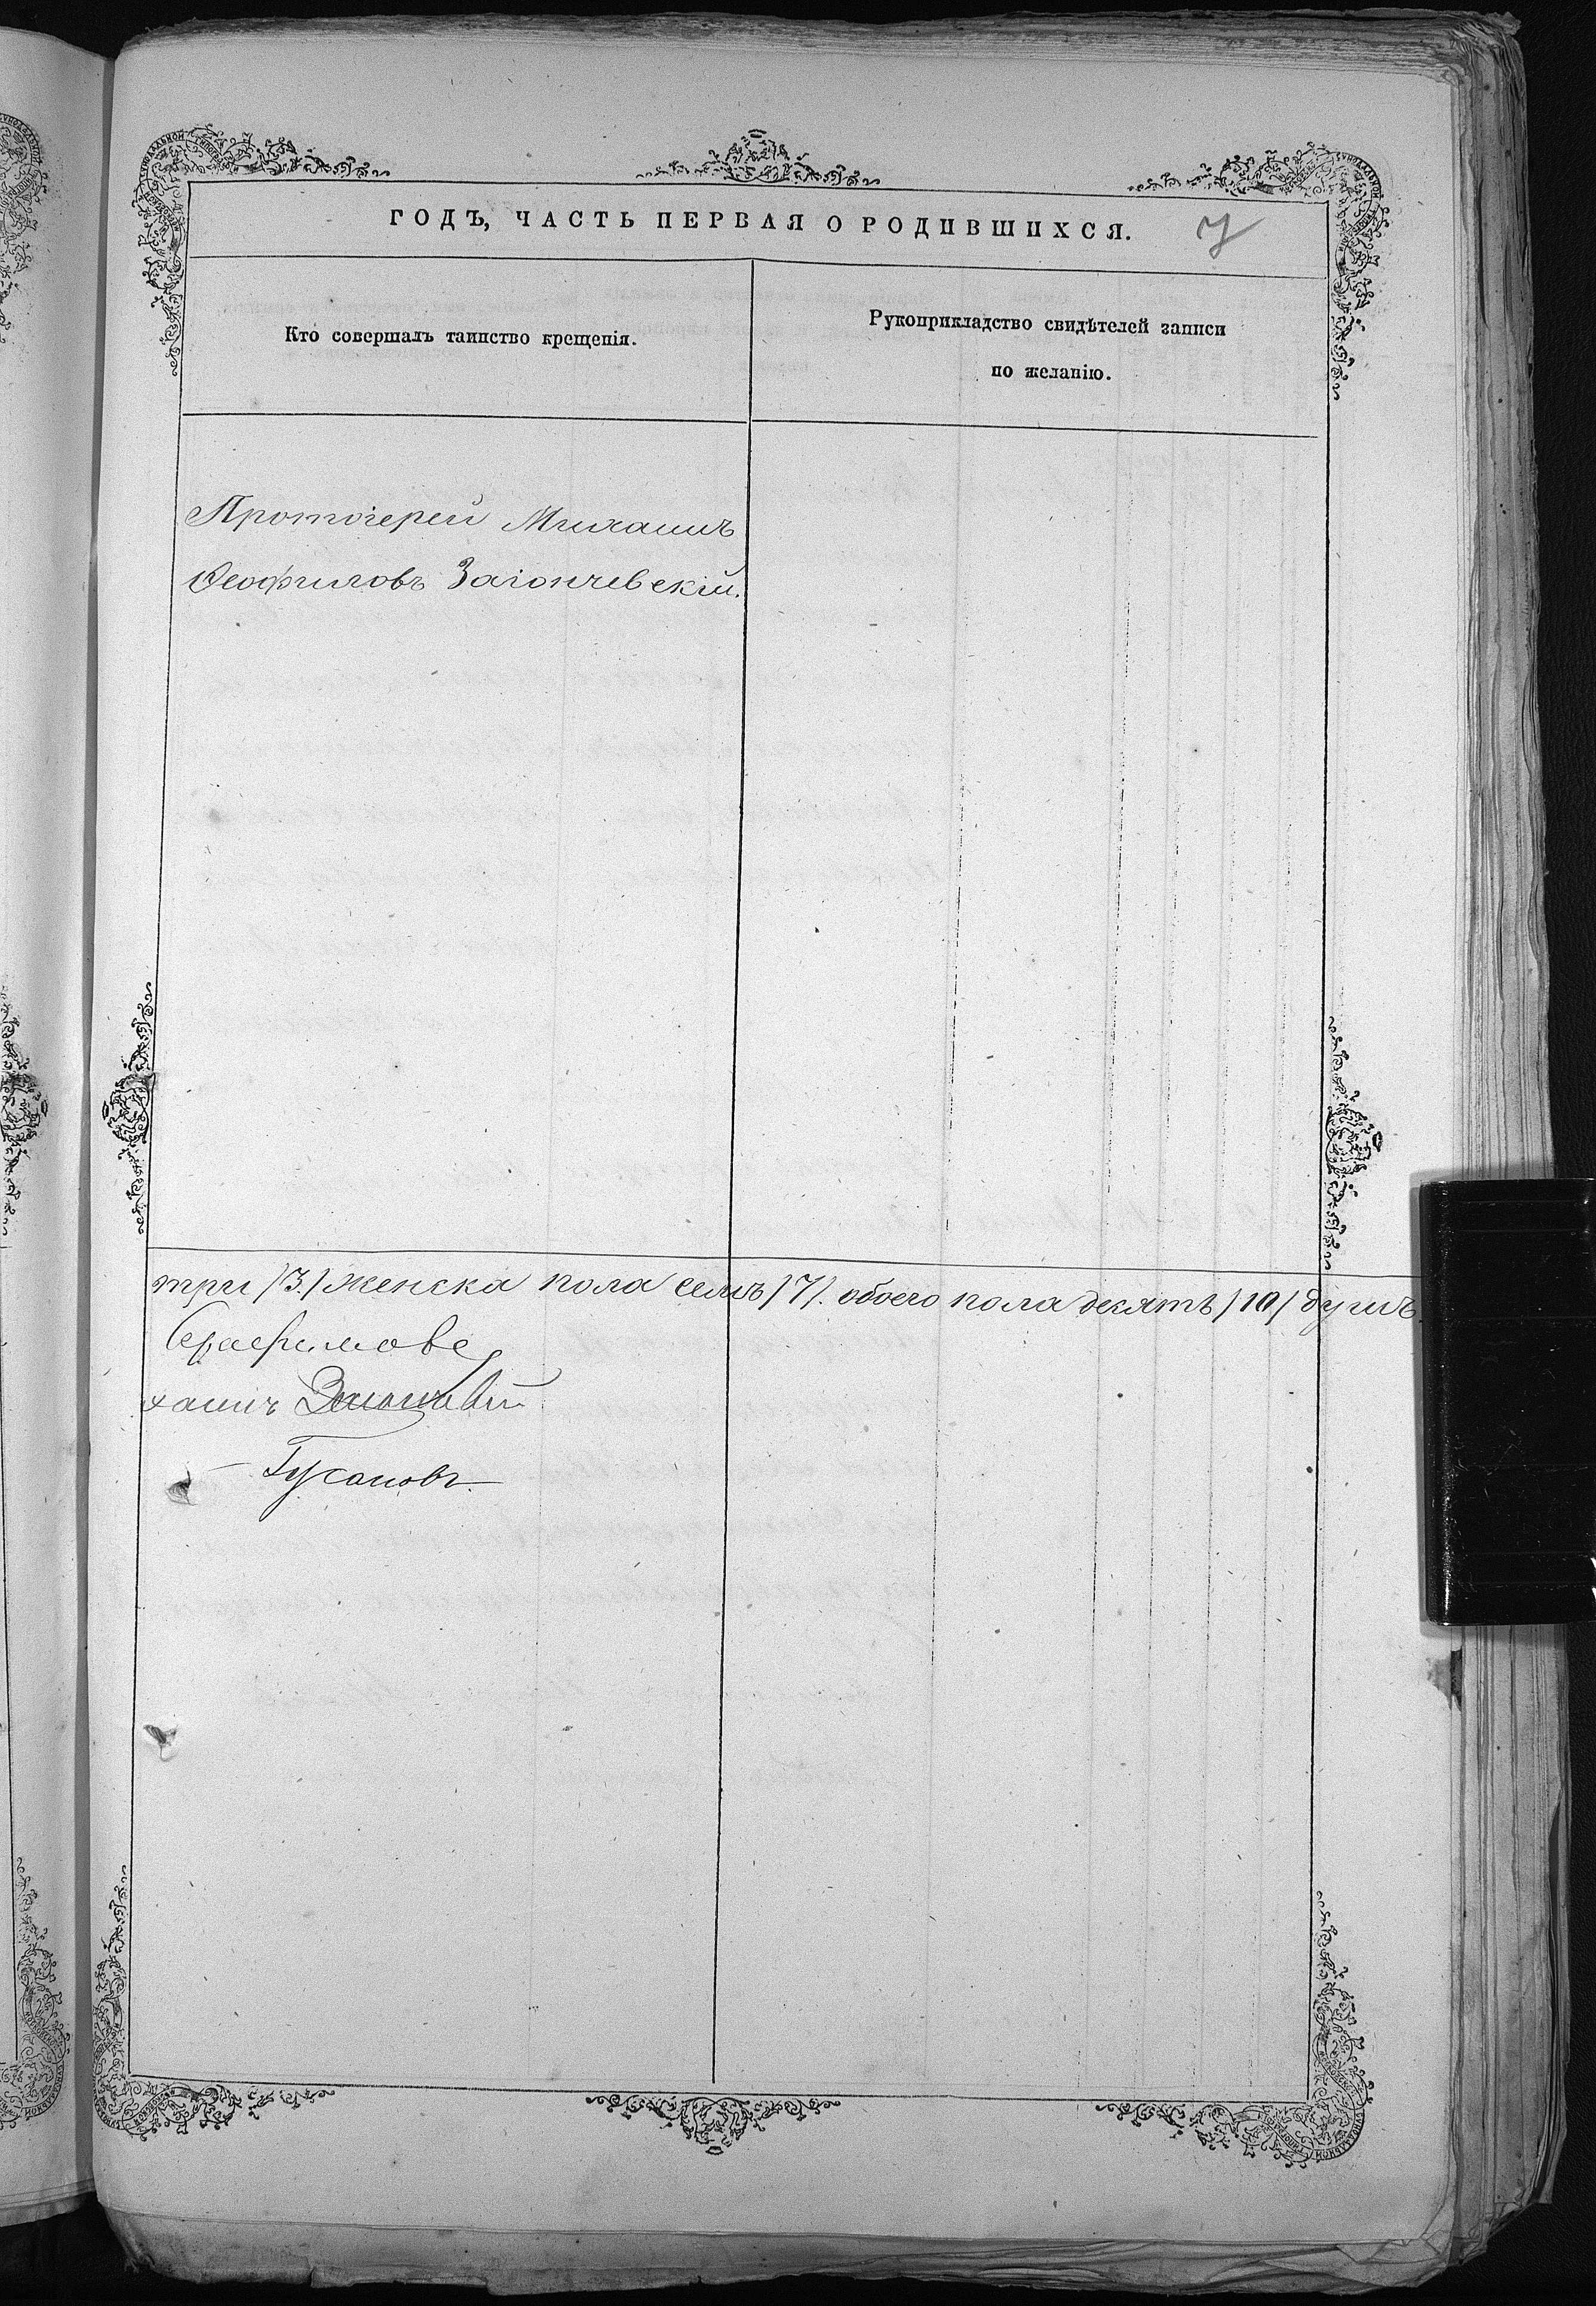 ГОДЪ, ЧАСТЬ ПЕРВАЯ О РОДИВШИХСЯ.
7
Кто совершалъ таинство крещенія.
Рукоприкладство свидѣтелей записи
по желанію.
Протоіерей Михаилъ
Ѳеофиловъ Заіончевскій.
три /3/ женска пола семь /7/. обоего пола десять /10/ душъ.
хаилъ
Гусаковъ